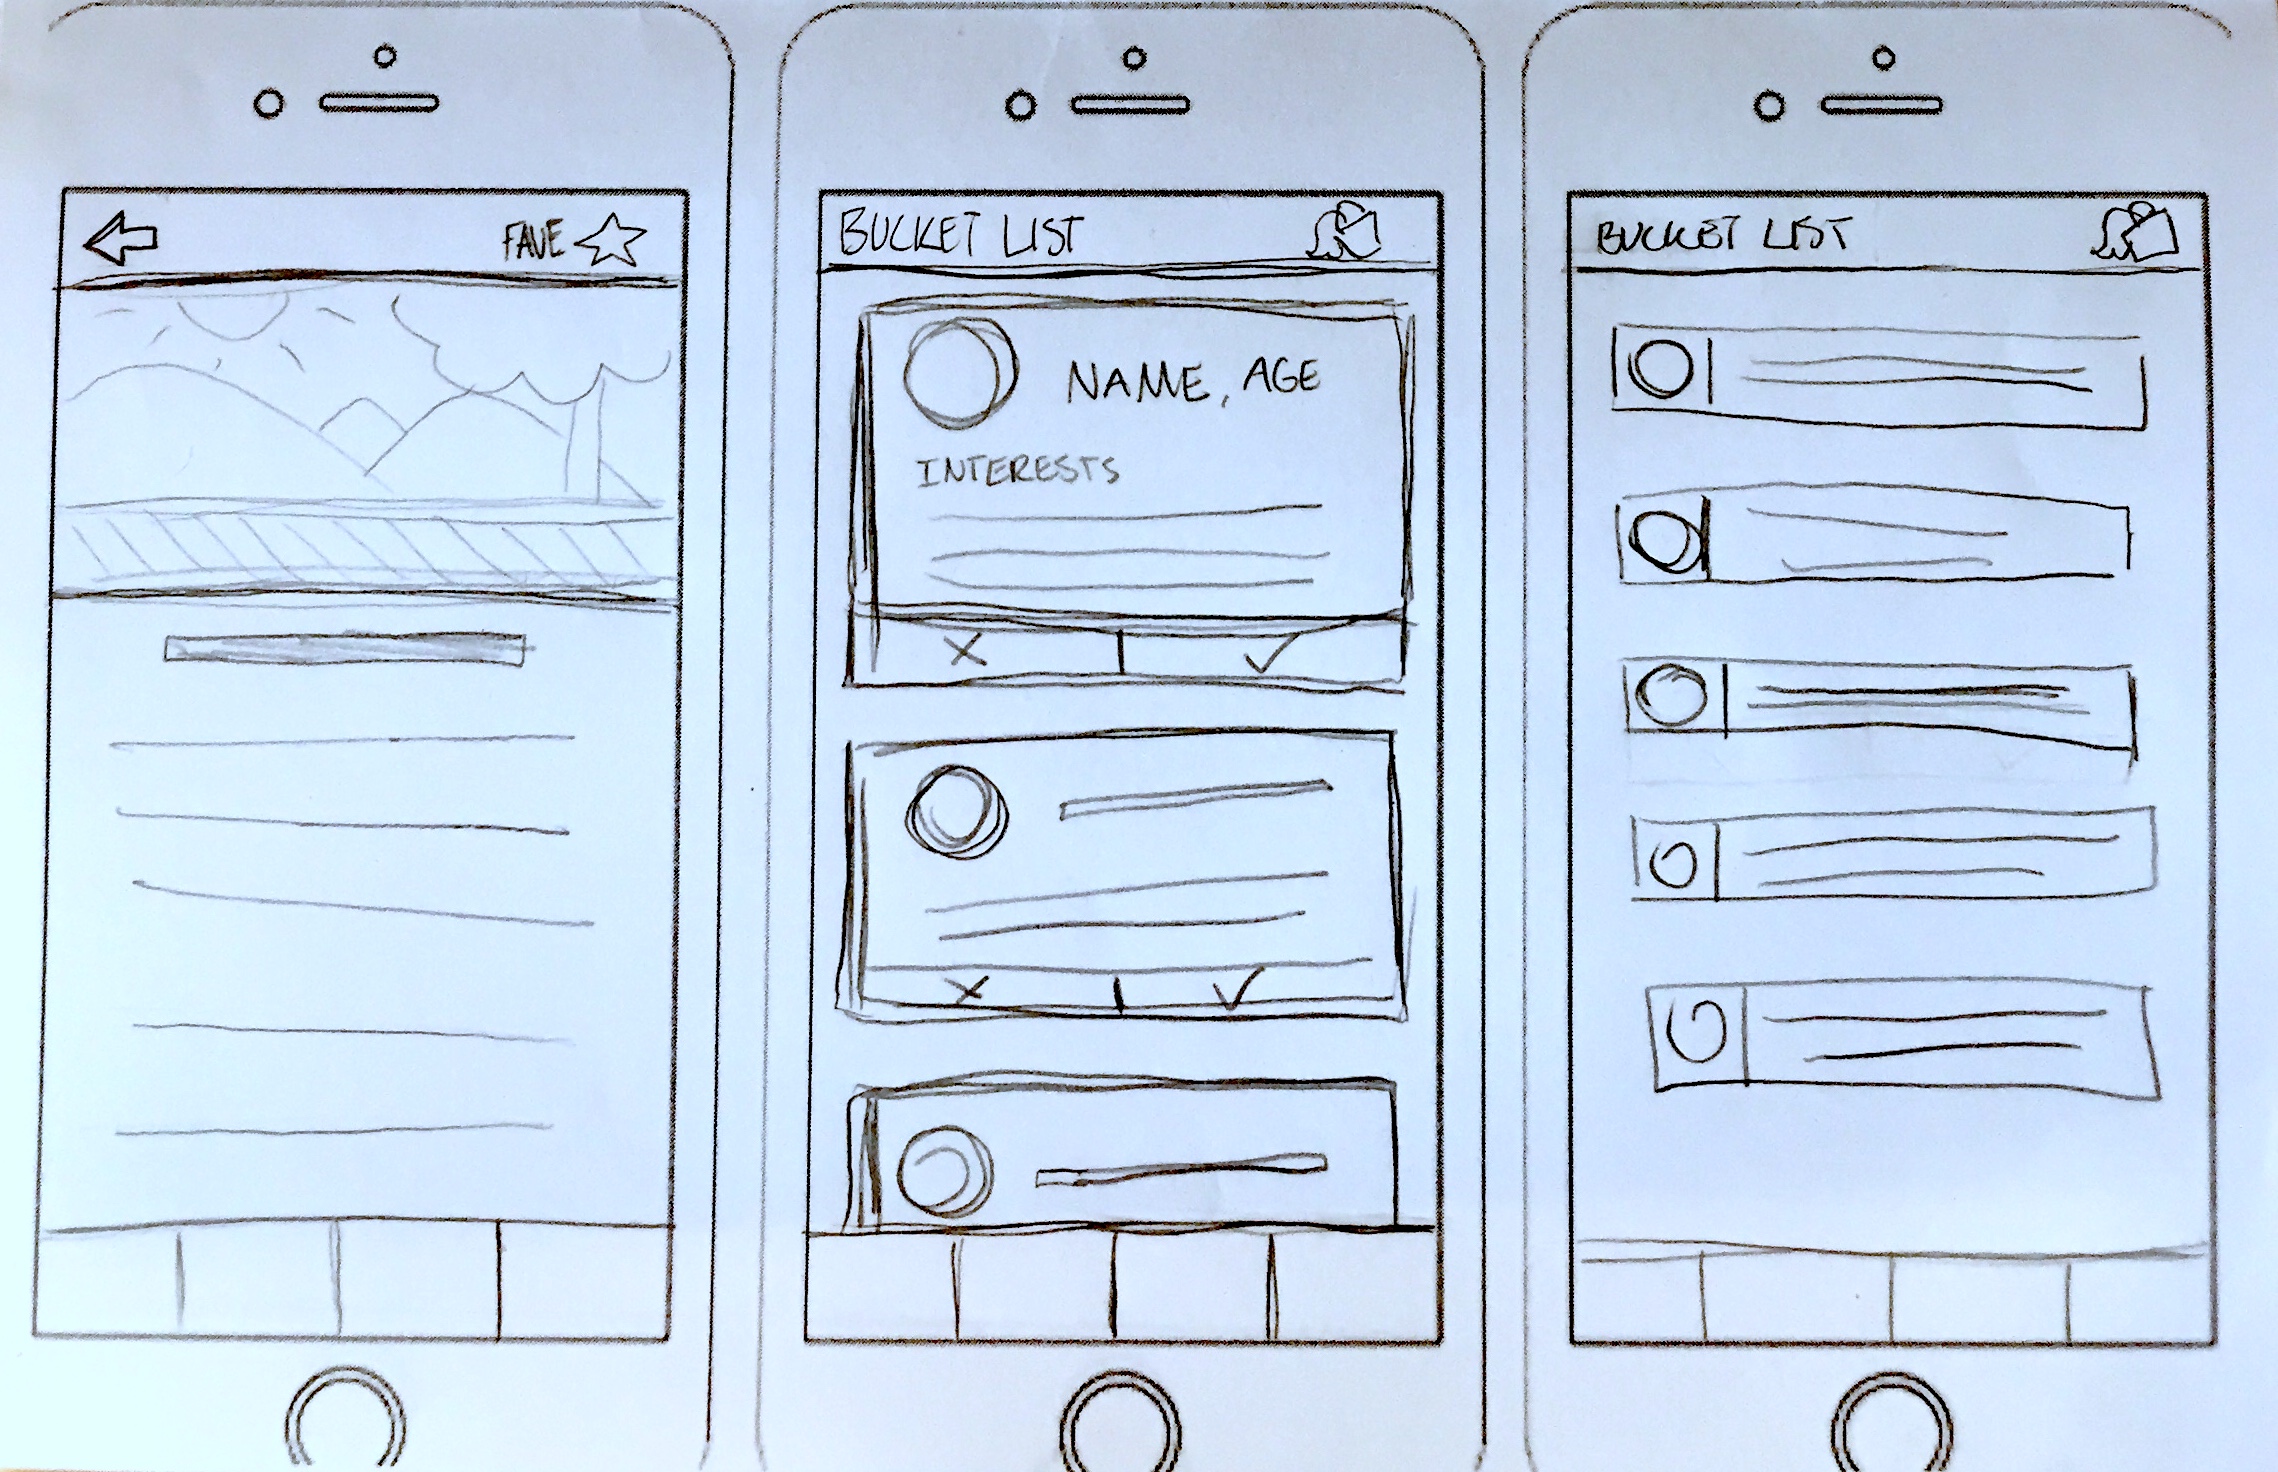 FAVE
BUCKET LIST
NAME, AGE
INTERESTS
BUCKET LIST